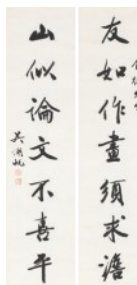 友如作畫須求澹
山似論文不喜平